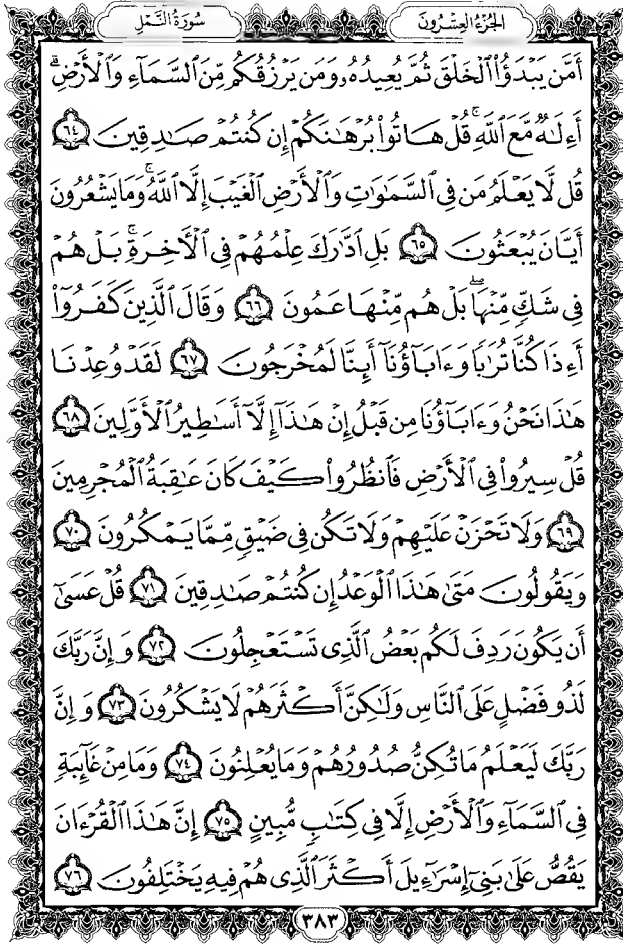 سُورَةُ النَّمْلِ
الجُزْءُ العِشْرُونَ
أَمَّن يَبْدَؤُاْ الْخَلْقَ ثُمَّ يُعِيدُهُۥ وَمَن يَرْزُقُكُم مِّنَ السَّمَآءِ وَالْأَرْضِۗ
أَءِلَٰهٌ مَّعَ اللَّهِۚ قُلْ هَاتُواْ بُرْهَٰنَكُمْ إِن كُنتُمْ صَٰدِقِينَ ٦٤
قُل لَّا يَعْلَمُ مَن فِي السَّمَٰوَٰتِ وَالْأَرْضِ الْغَيْبَ إِلَّا اللَّهُۚ وَمَا يَشْعُرُونَ
أَيَّانَ يُبْعَثُونَ ٦٥ بَلِ ادَّٰرَكَ عِلْمُهُمْ فِي الْأَخِرَةِۚ بَلْ هُمْ
فِي شَكٍّ مِّنْهَاۖ بَلْ هُم مِّنْهَا عَمُونَ ٦٦ وَقَالَ الَّذِينَ كَفَرُوٓاْ
أَءِذَا كُنَّا تُرَٰبًا وَءَابَآؤُنَآ أَئِنَّا لَمُخْرَجُونَ ٦٧ لَقَدْ وُعِدْنَا
هَٰذَا نَحْنُ وَءَابَآؤُنَا مِن قَبْلُ إِنْ هَٰذَآ إِلَّآ أَسَٰطِيرُ الْأَوَّلِينَ ٦٨
قُلْ سِيرُواْ فِي الْأَرْضِ فَانظُرُواْ كَيْفَ كَانَ عَٰقِبَةُ الْمُجْرِمِينَ
٦٩ وَلَا تَحْزَنْ عَلَيْهِمْ وَلَا تَكُن فِي ضَيْقٍ مِّمَّا يَمْكُرُونَ ٧٠
وَيَقُولُونَ مَتَىٰ هَٰذَا الْوَعْدُ إِن كُنتُمْ صَٰدِقِينَ ٧١ قُلْ عَسَىٰٓ
أَن يَكُونَ رَدِفَ لَكُم بَعْضُ الَّذِي تَسْتَعْجِلُونَ ٧٢ وَإِنَّ رَبَّكَ
لَذُو فَضْلٍ عَلَى النَّاسِ وَلَٰكِنَّ أَكْثَرَهُمْ لَا يَشْكُرُونَ ٧٣ وَإِنَّ
رَبَّكَ لَيَعْلَمُ مَا تُكِنُّ صُدُورُهُمْ وَمَا يُعْلِنُونَ ٧٤ وَمَا مِنْ غَآئِبَةٍ
فِي السَّمَآءِ وَالْأَرْضِ إِلَّا فِي كِتَٰبٍ مُّبِينٍ ٧٥ إِنَّ هَٰذَا الْقُرْءَانَ
يَقُصُّ عَلَىٰ بَنِيٓ إِسْرَٰٓءِيلَ أَكْثَرَ الَّذِي هُمْ فِيهِ يَخْتَلِفُونَ ٧٦
٣٨٣